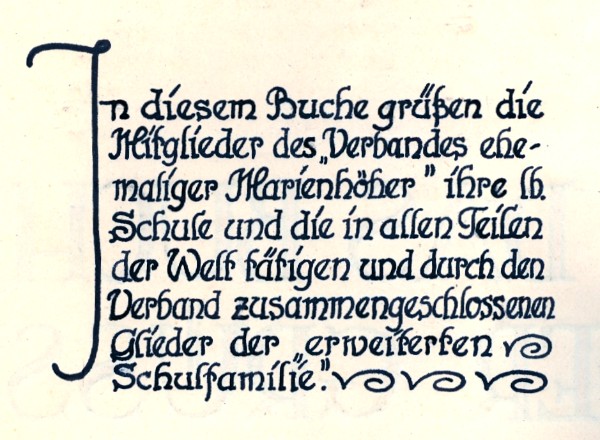 In diesem Buche grüßen die
Mitglieder des „Verbandes ehe-
maliger Marienhöher" ihre lb.
Schule und die in allen Teilen
der Welt tätigen und durch den
Verband zusammengeschlossenen
Glieder der „erweiterten
Schulfamilie".